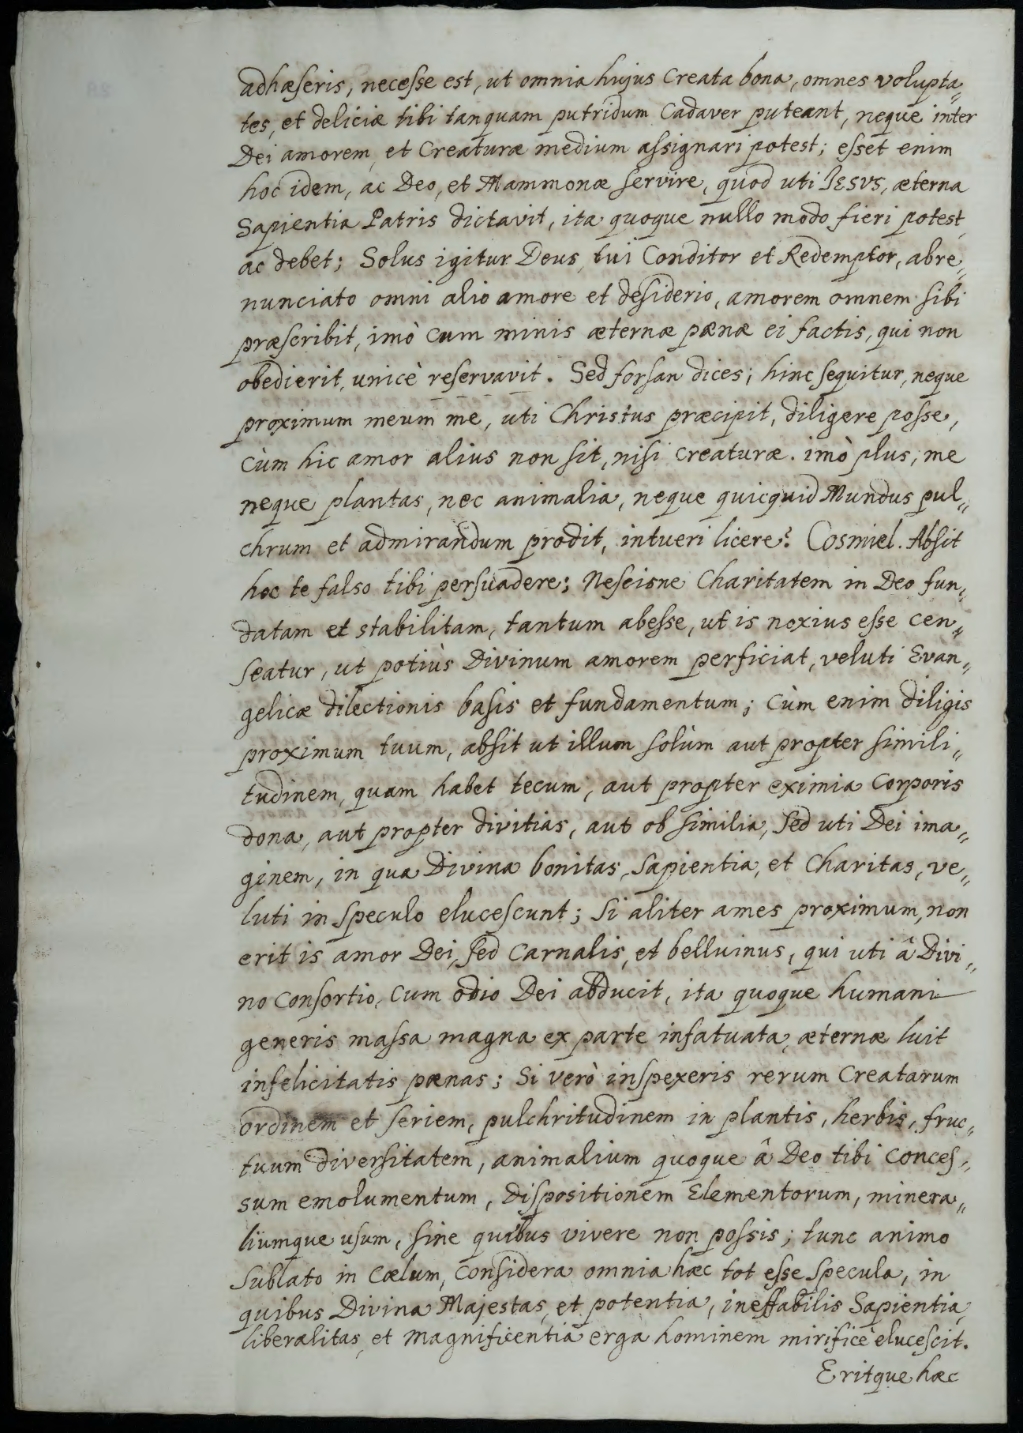 adhæseris, necesse est, ut omnia hujus Creata bona, omnes volupta„
tes, et deliciæ tibi tanquam putridum Cadaver puteant, neque inter
Dei amorem, et Creaturæ medium assignari potest; esset enim
hoc idem, ac Deo, et Mammonæ servire, quod uti JESVS, æterna
Sapientia Patris dictavit, ita quoque nullo modo fieri potest,
ac debet; Solus igitur Deus, tui Conditor et Redemptor, abre„
nunciato omni alio amore et desiderio, amorem omnem sibi
præscribit, imò cum minis æternæ pænæ ei factis, qui non
obedierit, unicè reservavit. Sed forsan dices; hinc sequitur, neque
proximum meum me, uti Christus præcipit, diligere posse,
cùm hic amor alius non sit, nisi creaturæ. imò plus, me
neque plantas, nec animalia, neque quicquid Mundus pul„
chrum et admirandum prodit, intueri licere? Cosmiel. Absit
hoc te falso tibi persuadere; Nescisne Charitatem in Deo fun„
datam et stabilitam, tantum abesse, ut is noxius esse cen„
seatur, ut potiùs Divinum amorem perficiat, veluti Evan„
gelicæ dilectionis basis et fundamentum; Cùm enim diligis
proximum tuum, absit ut illum solùm aut propter simili„
tudinem, quam habet tecum, aut propter eximia Corporis
dona, aut propter divitias, aut ob similia, sed uti Dei ima„
ginem, in qua Divina bonitas, sapientia, et Charitas, ve„
luti in speculo elucescunt; si aliter ames proximum, non
erit is amor Dei, sed Carnalis, et belluinus, qui uti â Divi„
no Consortio, cum odio Dei abducit, ita quoque humani
generis massa magna ex parte infatuata, æternæ luit
infelicitatis pænas; Si verò inspexeris rerum Creatarum
ordinem et seriem, pulchritudinem in plantis, herbis, fruc„
tuum diversitatem, animalium quoque â Deo tibi conces„
sum emolumentum, Dispositionem Elementorum, minera„
liumque usum, sine quibus vivere non possis; tunc animo
sublato in Cælum, Considera omnia hæc tot esse specula, in
quibus Divina Majestas, et potentia, ineffabilis Sapientia,
liberalitas, et magnificentia erga hominem mirificè elucescit.
Eritque hæc